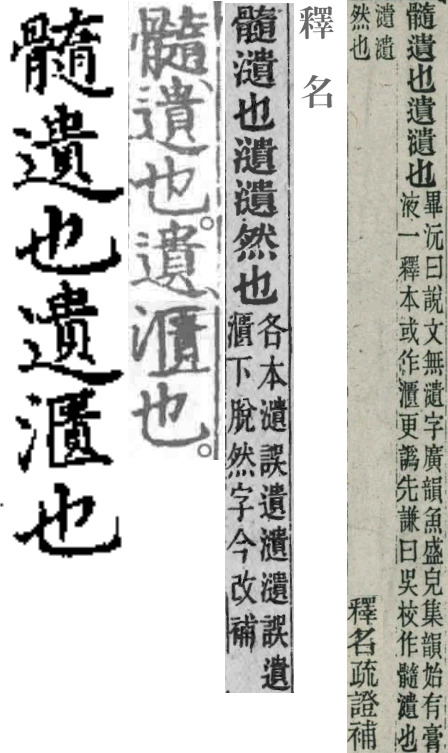 髓遺也遺瀢也
畢沅曰說文無瀢字廣韻魚盛皃集韻始有膏
液一釋本或作⿰氵匱更譌先謙曰吳校作髓瀢也
瀢瀢
然也
釋名疏證補
釋名
髓瀢也瀢瀢然也
各本瀢誤遺瀢瀢誤遺
⿰氵匱下脫然字今改補
髓遺也。遺⿰氵匱也。
髓遺也遺⿰氵匱也